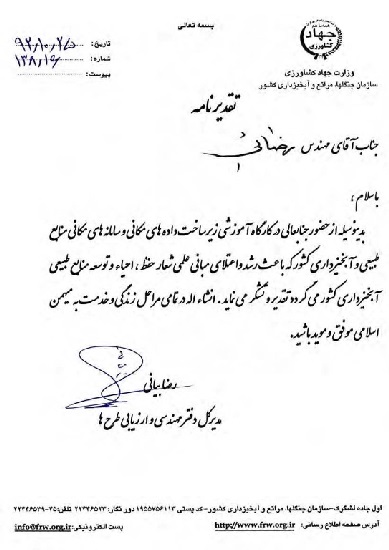 بسمه تعالی
جهاد
کشاورزی
وزارت جهاد کشاورزی
سازمان جنگلها، مراتع و آبخیزداری کشور
تاریخ:
شماره:
پیوست:
تقدیرنامه
جناب آقای مهندس رضائی
باسلام؛
بدینوسیله از حضور جنابعالی در کارگاه آموزشی زیرساخت داده های مکانی و سامانه های مکانی منابع
طبیعی و آبخیزداری کشور که باعث رشد و اعتلای مبانی علمی شعار حفظ، احیاء و توسعه منابع طبیعی
آبخیزداری کشور می گردد تقدیر و تشکر می نماید. انشاء اله در تمامی مراحل زندگی و خدمت به میهن
اسلامی موفق و موید باشید.
رضا بیانی
مدیرکل دفتر مهندسی و ارزیابی طرح ها
اول جاده لشگرک-سازمان جنگلها، مراتع و آبخیزداری کشور-کد پستی دورنگار: تلفن:
آدرس صفحه اطلاع رسانی: http://www.frw.org.ir پست الکترونیکی: info@frw.org.ir